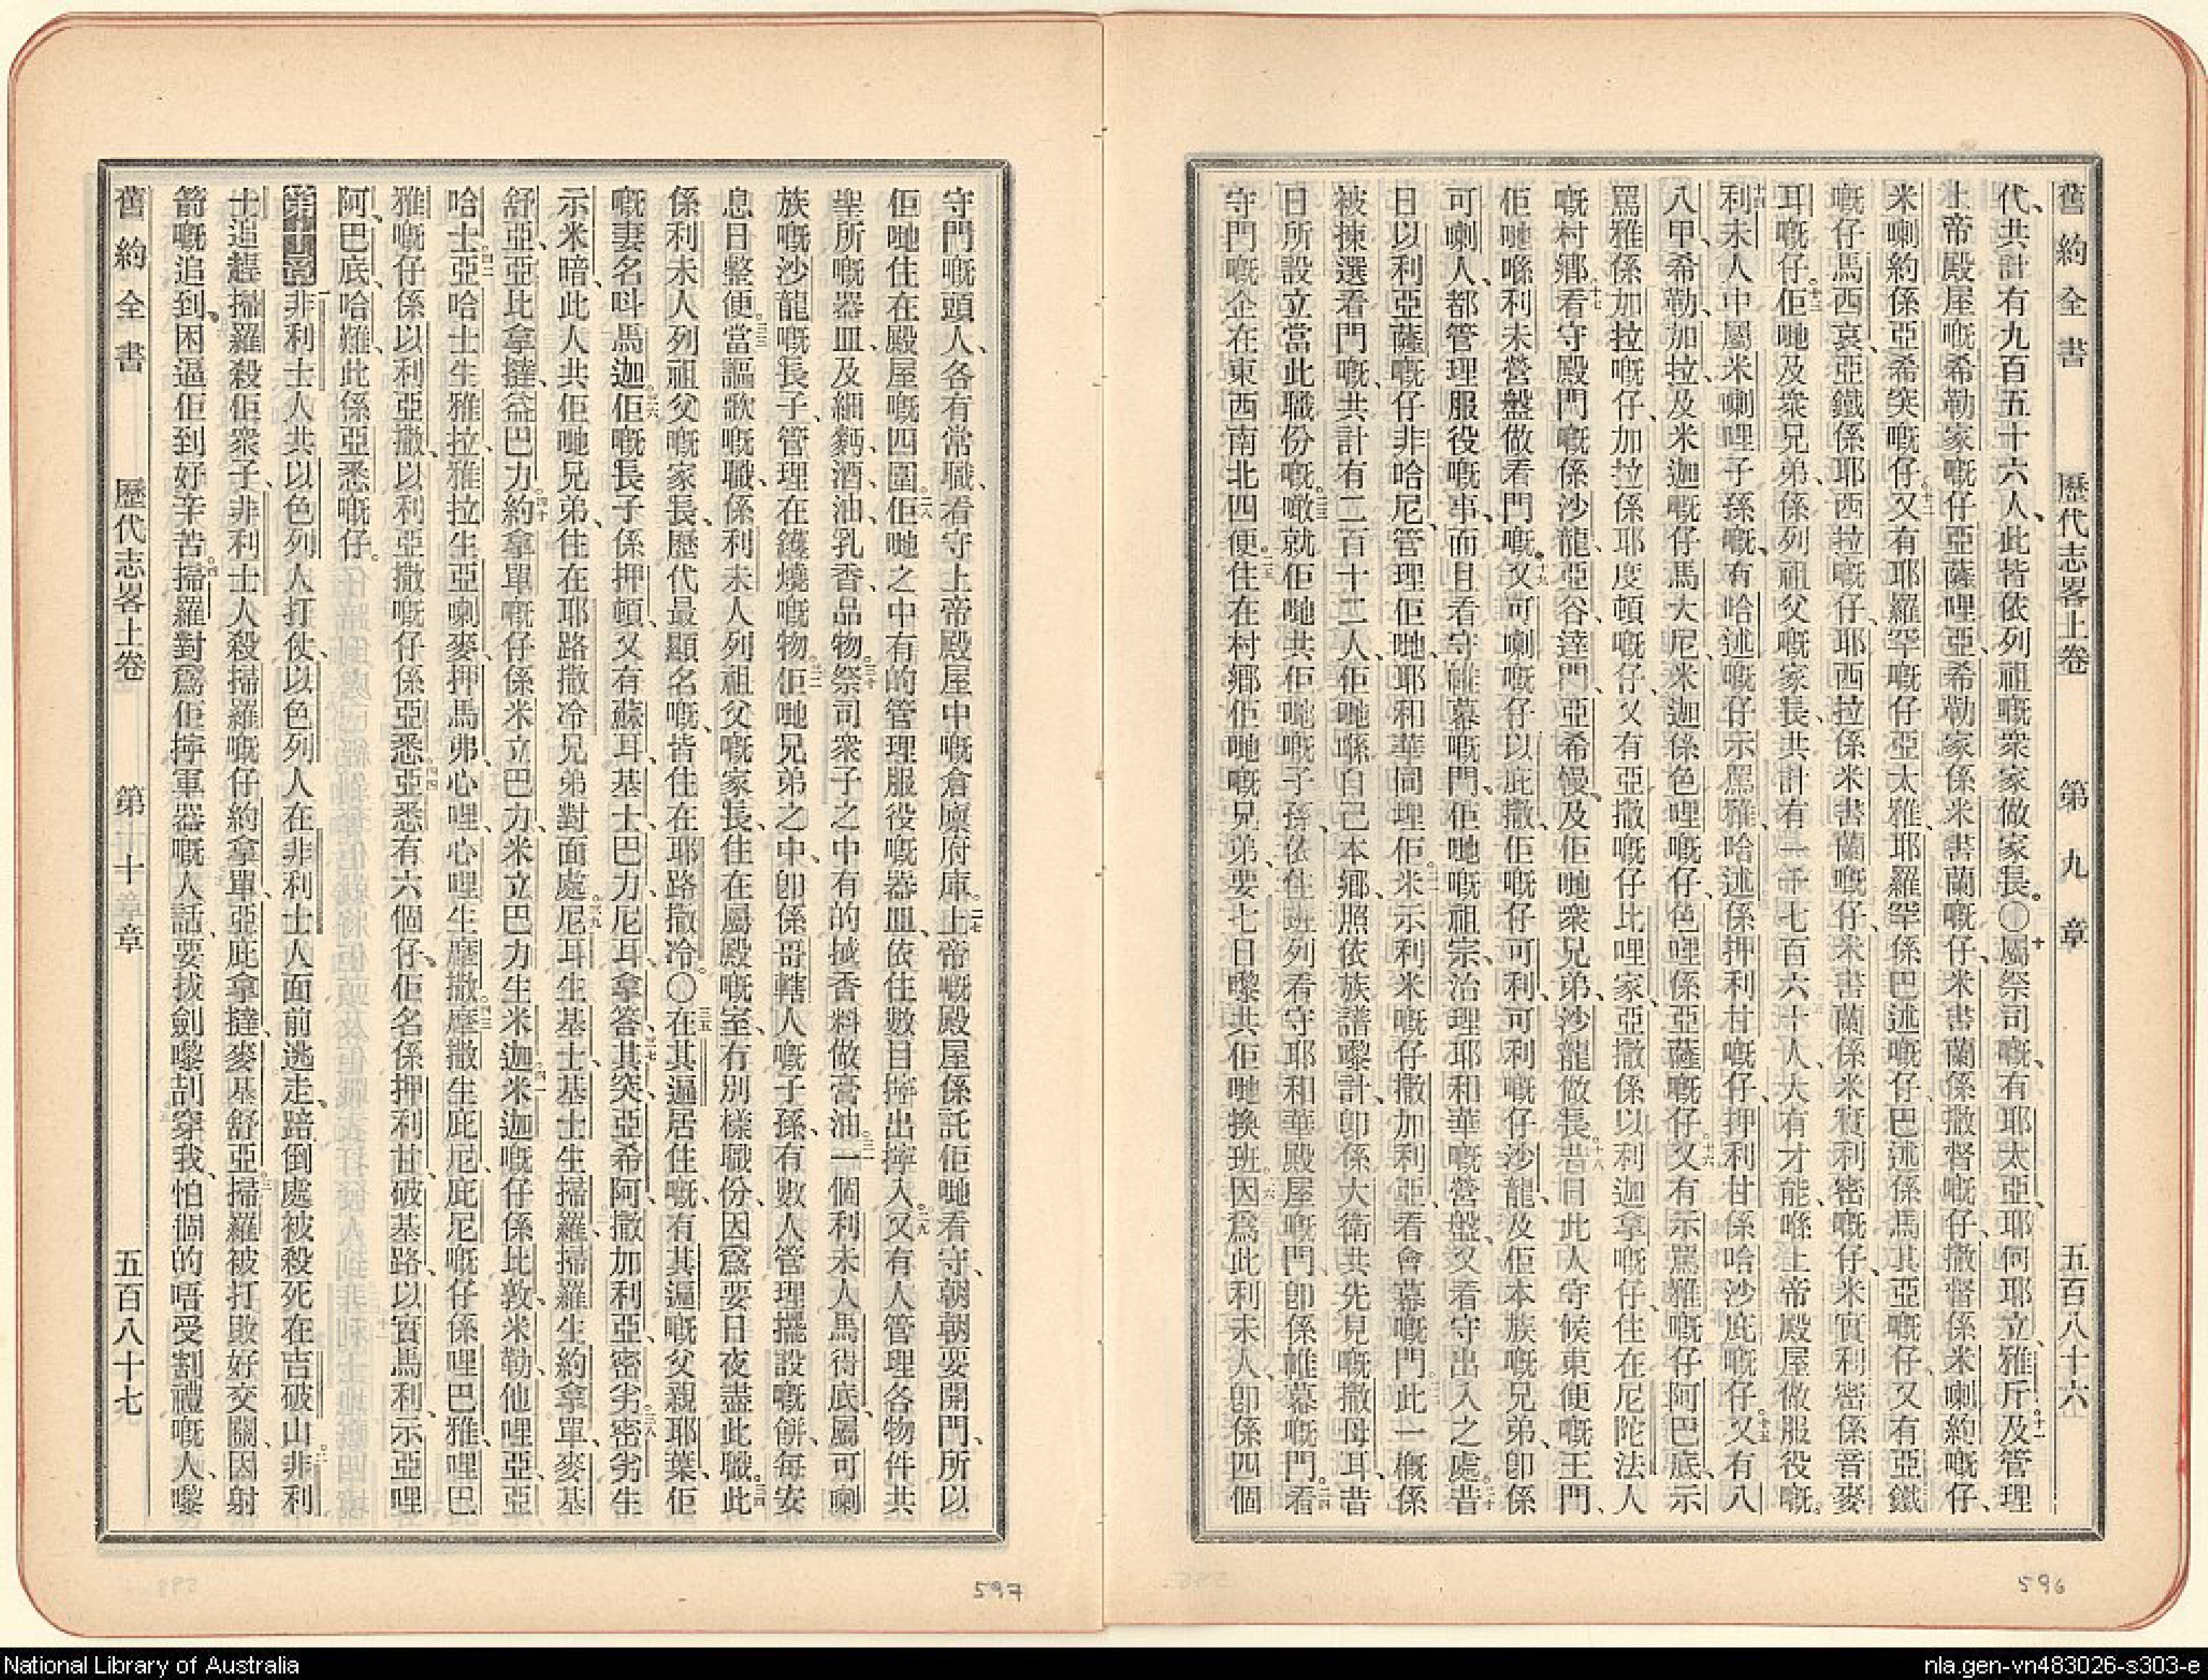 舊約全書 歷代志畧上卷 第九章 五百八十六
代、共計有九百五十六人、此皆依列祖嘅衆家做家長。〇十屬祭司嘅、有耶太亞、耶何耶立、雅斤、十一及管理
上帝殿屋嘅希勒家嘅仔亞薩哩亞、希勒家係米書蘭嘅仔、米書蘭係撒督嘅仔、撒督係米喇約嘅仔、
米喇約係亞希突嘅仔、十二又有耶羅罕嘅仔亞太雅、耶羅罕係巴述嘅仔、巴述係馬其亞嘅仔、又有亞鐵
嘅仔馬西哀、亞鐵係耶西拉嘅仔、耶西拉係米書蘭嘅仔、米書蘭係米實利密嘅仔、米實利密係音麥
耳嘅仔。十三佢哋及衆兄弟、係列祖父嘅家長、共計有一千七百六十人、大有才能喺上帝殿屋做服役嘅。
十四利未人中屬米喇哩子孫嘅、有哈述嘅仔示罵雅、哈述係押利甘嘅仔、押利甘係哈沙庇嘅仔。十五又有八
八甲、希勒、加拉、及米迦嘅仔馬大尼、米迦係色哩嘅仔、色哩係亞薩嘅仔。十六又有示罵雅嘅仔阿巴底、示
罵雅係加拉嘅仔、加拉係耶度頓嘅仔、又有亞撒嘅仔比哩家、亞撒係以利迦拿嘅仔、住在尼陀法人
嘅村鄉。十七看守殿門嘅係沙龍、亞谷、達門、亞希慢、及佢哋衆兄弟、沙龍做長。十八昔日此人守候東便嘅王門、
佢哋喺利未營盤做看門嘅。十九又可喇嘅仔以庇撒、佢嘅仔可利、可利嘅仔沙龍、及佢本族嘅兄弟、卽係
可喇人、都管理服役嘅事、而且看守帷幕嘅門、佢哋嘅祖宗治理耶和華嘅營盤、又看守出入之處。二十昔
日以利亞薩嘅仔非哈尼、管理佢哋、耶和華同埋佢。二一米示利米嘅仔撒加利亞、看會幕嘅門。二二此一概係
被揀選看門嘅、共計有二百十二人、佢哋喺自己本鄉、照依族譜嚟計、卽係大衛共先見嘅撒母耳、昔
日所設立當此職份嘅。二三噉就佢哋共佢哋嘅子孫、依住班列看守耶和華殿屋嘅門、卽係帷幕嘅門。二四看
守門嘅企在東西南北四便。二五住在村鄉佢哋嘅兄弟、要七日嚟共佢哋換班。二六因爲此利未人、卽係四個
596
守門嘅頭人、各有常職、看守上帝殿屋中嘅倉廩府庫。二七上帝嘅殿屋係託佢哋看守、朝朝要開門、所以
佢哋住在殿屋嘅四圍。二八佢哋之中有的管理服役嘅器皿、依住數目擰出擰入。二九又有人管理各物件共
聖所嘅器皿、及細麪、酒、油、乳香、品物。三十祭司衆子之中有的攙香料做膏油。三一一個利未人馬得底、屬可喇
族嘅沙龍嘅長子、管理在鑊燒嘅物。三二佢哋兄弟之中、卽係哥轄人嘅子孫、有數人管理擺設嘅餅、每安
息日整便。三三當謳歌嘅職、係利未人列祖父嘅家長、住在屬殿嘅室、冇別樣職份、因爲要日夜盡此職。三四此
係利未人列祖父嘅家長、歷代最顯名嘅、皆住在耶路撒冷。〇三五在其遍居住嘅、有其遍嘅父親耶葉、佢
嘅妻名呌馬迦。三六佢嘅長子係押頓、又有蘇耳、基士、巴力、尼耳、拿答、三七其突、亞希阿、撒加利亞、密劣。三八密劣生
示米暗、此人共佢哋兄弟、住在耶路撒冷兄弟對面處。三九尼耳生基士、基士生掃羅、掃羅生約拿單、麥基
舒亞、亞比拿撻、益巴力。四十約拿單嘅仔係米立巴力、米立巴力生米迦。四一米迦嘅仔係比敦、米勒、他哩亞、亞
哈士。四二亞哈士生雅拉、雅拉生亞喇麥、押馬弗、心哩、心哩生摩撒。四三摩撒生庇尼、庇尼嘅仔係哩巴雅、哩巴
雅嘅仔係以利亞撒、以利亞撒嘅仔係亞悉。四四亞悉有六個仔、佢名係押利甘、破基路、以實馬利、示亞哩
阿、巴底、哈難、此係亞悉嘅仔。
第十章 一非利士人共以色列人打仗、以色列人在非利士人面前逃走、踣倒處被殺死在吉破山。二非利
士追趕掃羅殺佢衆子、非利士人殺掃羅嘅仔約拿單、亞庇拿撻、麥基舒亞。三掃羅被打敗好交關、因射
箭嘅追到、困逼佢到好辛苦。四掃羅對爲佢擰軍器嘅人話、要拔劍嚟刮穿我、怕個的唔受割禮嘅人、嚟
舊約全書 歷代志畧上卷 第十章 五百八十七
597
National Library of Australia
nla.gen-vn483026-s303-e